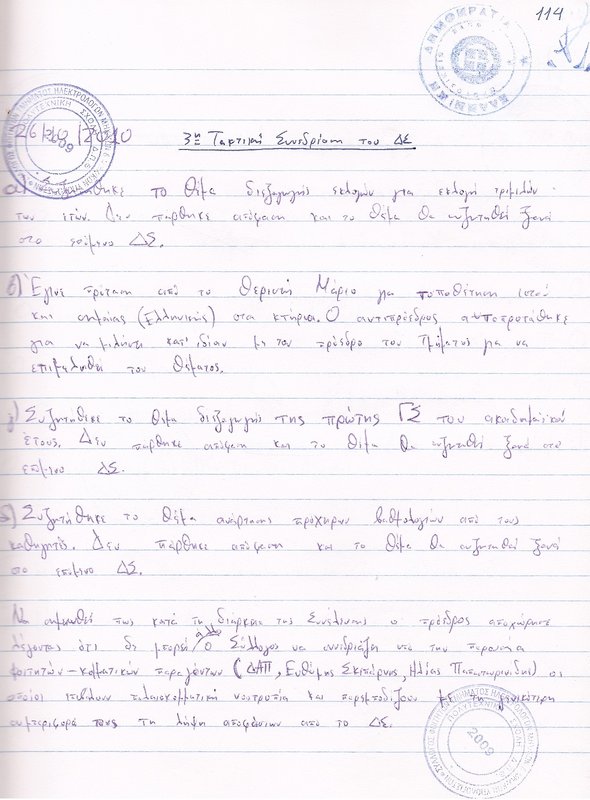 114
ΕΛΛΗΝΙΚΗ ΔΗΜΟΚΡΑΤΙΑ
26/ /2010
3η Τακτική Συνεδρίαση του ΔΣ
α) το θέμα διεξαγωγής εκλογών για εκλογή τριμελών
των ετών. Δεν πάρθηκε απόφαση και το θέμα θα συζητηθεί ξανά
στο επόμενο ΔΣ.
β) Έγινε πρόταση από το Θερινιή Μάριο για τοποθέτηση ιστού
και σημαίας (Ελληνικής) στα κτήρια. Ο αντιπρόεδρος αυτοπροτάθηκε
για να μιλήσει κατ' ιδίαν με τον πρόεδρο του Τμήματος για να
επιμεληθεί του θέματος.
γ) Συζητήθηκε το θέμα διεξαγωγής της πρώτης ΓΣ του ακαδημαϊκού
έτους. Δεν πάρθηκε απόφαση και το θέμα θα συζητηθεί ξανά στο
επόμενο ΔΣ.
δ) Συζητήθηκε το θέμα ανάρτησης πρόχειρων βαθμολογιών από τους
καθηγητές. Δεν πάρθηκε απόφαση και το θέμα θα συζητηθεί ξανά
στο επόμενο ΔΣ.
Να σημειωθεί πως κατά τη διάρκεια της Συνέλευσης ο πρόεδρος αποχώρησε
λέγοντας ότι δε μπορεί ο Σύλλογος να συνεδριάζει υπό την παρουσία
φοιτητών-κομματικών παραγόντων (ΔΑΠ, Ευθύμης Σκιπάρνης, Ηλίας ) οι
οποίοι επιβάλουν παλαιοκομματική νοοτροπία και παρεμποδίζουν με την γενικότερη
συμπεριφορά τους τη λήψη αποφάσεων από το ΔΣ.
2009